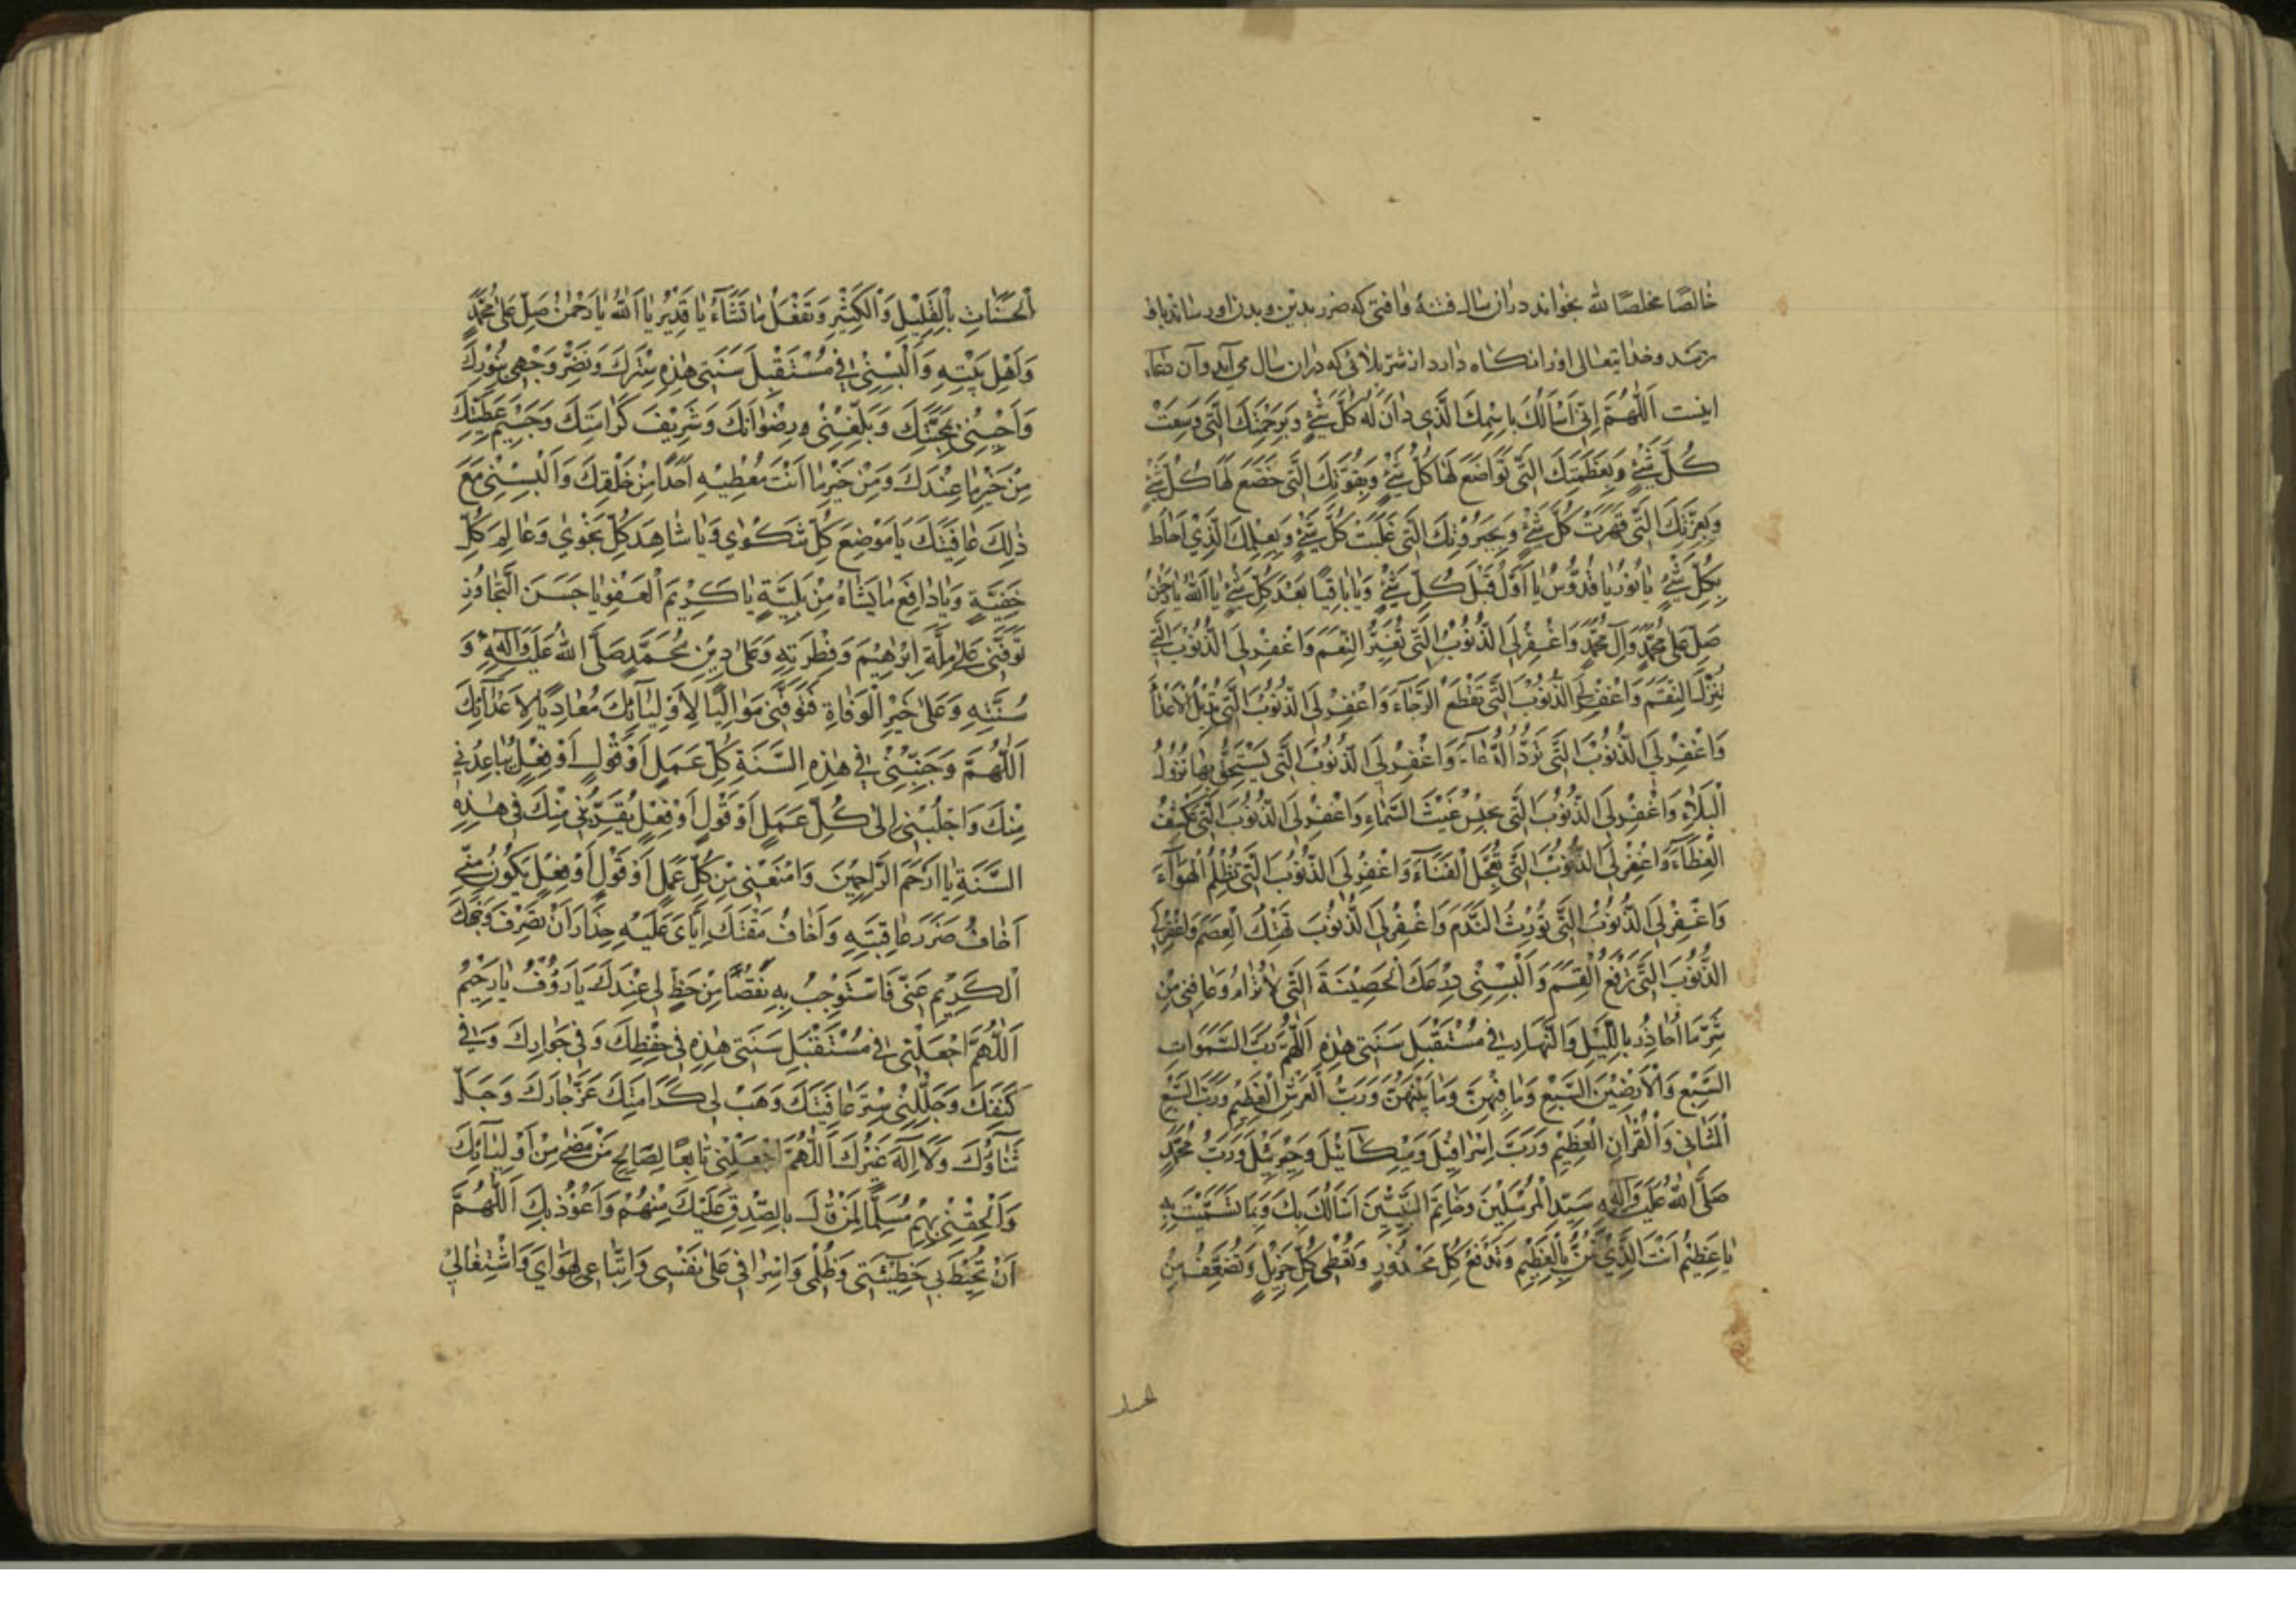 خالصًا مخلصًا لله بخواند در ان سال فتنهٔ وافتی که ضرر بدین و بدن او رساند باو
نرسد وخدایتعالی اورا نکاه دارد از شر بلائی که در ان سال می آید وآن دعاء
اینست اَللّٰهُمَّ اِنّی اَسْاَلُكَ بِاسْمِكَ الَّذی دانَ لَهُ كُلُّ شَیْءٍ وَبِرَحْمَتِكَ الَّتی وَسِعَتْ
كُلَّ شَیْءٍ وَبِعَظَمَتِكَ الَّتی تَوَاضَعَ لَهَا كُلُّ شَیْءٍ وَبِقُوَّتِكَ الَّتی خَضَعَ لَهَا كُلُّ شَیْءٍ
وَبِعِزَّتِكَ الَّتی قَهَرَتْ كُلَّ شَیْءٍ وَبِجَبَرُوتِكَ الَّتی غَلَبَتْ كُلَّ شَیْءٍ وَبِعِلْمِكَ الَّذی اَحَاطَ
بِكُلِّ شَیْءٍ یا نُورُ یا قُدُّوسُ یا اَوَّلُ قَبْلَ كُلِّ شَیْءٍ وَیا باقِیًا بَعْدَ كُلِّ شَیْءٍ یا اَللهُ یا رَحْمٰنُ
صَلِّ عَلیٰ مُحَمَّدٍ وَآلِ مُحَمَّدٍ وَاغْفِرْ لِیَ الذُّنُوبَ الَّتی تُغَیِّرُ النِّعَمَ وَاغْفِرْ لِیَ الذُّنُوبَ الَّتی
تُنْزِلُ النِّقَمَ وَاغْفِرْ لِیَ الذُّنُوبَ الَّتی تَقْطَعُ الرَّجَاءَ وَاغْفِرْ لِیَ الذُّنُوبَ الَّتی تُدِیلُ الْاَعْدَاءَ
وَاغْفِرْ لِیَ الذُّنُوبَ الَّتی تَرُدُّ الدُّعَاءَ وَاغْفِرْ لِیَ الذُّنُوبَ الَّتی یُسْتَحَقُّ بِهَا نُزُولُ
الْبَلَاءِ وَاغْفِرْ لِیَ الذُّنُوبَ الَّتی تَحْبِسُ غَیْثَ السَّمَاءِ وَاغْفِرْ لِیَ الذُّنُوبَ الَّتی تَكْشِفُ
الْغِطَاءَ وَاغْفِرْ لِیَ الذُّنُوبَ الَّتی تُعَجِّلُ الْفَنَاءَ وَاغْفِرْ لِیَ الذُّنُوبَ الَّتی تُظْلِمُ الْهَوَاءَ
وَاغْفِرْ لِیَ الذُّنُوبَ الَّتی تُورِثُ النَّدَمَ وَاغْفِرْ لِیَ الذُّنُوبَ تَهْتِكُ الْعِصَمَ وَاغْفِرْ لِیَ
الذُّنُوبَ الَّتی تَرْفَعُ الْقِسَمَ وَاَلْبِسْنی دِرْعَكَ الْحَصِینَةَ الَّتی لَا تُرَامُ وَعَافِنی مِنْ
شَرِّ مَا اُحَاذِرُ بِاللَّیْلِ وَالنَّهَارِ فی مُسْتَقْبَلِ سَنَتی هٰذِهِ اَللّٰهُمَّ رَبَّ السَّمٰوَاتِ
السَّبْعِ وَالْاَرَضِینَ السَّبْعِ وَمَا فِیهِنَّ وَمَا بَیْنَهُنَّ وَرَبَّ الْعَرْشِ الْعَظِیمِ وَرَبَّ السَّبْعِ
الْمَثَانی وَالْقُرْآنِ الْعَظِیمِ وَرَبَّ اِسْرَافِیلَ وَمِیكَآئِیلَ وَجِبْرَئِیلَ وَرَبَّ مُحَمَّدٍ
صَلَّی اللهُ عَلَیْهِ وَآلِهِ سَیِّدِ الْمُرْسَلِینَ وَخَاتَمِ النَّبِیِّینَ اَسْاَلُكَ بِكَ وَبِمَا تَسَمَّیْتَ بِهِ
یا عَظِیمُ اَنْتَ الَّذی تَمُنُّ بِالْعَظِیمِ وَتَدْفَعُ كُلَّ مَحْذُورٍ وَتُعْطی كُلَّ جَزِیلٍ وَتُضَعِّفُ مِنَ
الْحَسَنَاتِ بِالْقَلِیلِ وَالْكَثِیرِ وَتَفْعَلُ مَا تَشَآءُ یا قَدِیرُ یا اَللهُ یا رَحْمٰنُ صَلِّ عَلیٰ مُحَمَّدٍ
وَاَهْلِ بَیْتِهِ وَاَلْبِسْنی فی مُسْتَقْبِلِ سَنَتی هٰذِهِ سِتْرَكَ وَنَضِّرْ وَجْهی بِنُورِكَ
وَاَحْیِنی بِمَحَبَّتِكَ وَبَلِّغْنی رِضْوَانَكَ وَشَرِیفَ كَرَامَتِكَ وَجَسِیمَ عَطِیَّتِكَ
مِنْ خَیْرِ مَا عِنْدَكَ وَمِنْ خَیْرِ مَا اَنْتَ مُعْطِیهِ اَحَدًا مِنْ خَلْقِكَ وَاَلْبِسْنی مَعَ
ذٰلِكَ عَافِیَتَكَ یا مَوْضِعَ كُلِّ شَكْوٰی وَیا شَاهِدَ كُلِّ نَجْوٰی وَعَالِمَ كُلِّ
خَفِیَّةٍ وَیا دَافِعَ مَا یَشَاءُ مِنْ بَلِیَّةٍ یا كَرِیمَ الْعَفْوِ یا حَسَنَ التَّجَاوُزِ
تَوَفَّنی عَلیٰ مِلَّةِ اِبْرٰهِیمَ وَفِطْرَتِهِ وَعَلیٰ دِینِ مُحَمَّدٍ صَلَّی اللهُ عَلَیْهِ وَآلِهِ وَ
سُنَّتِهِ وَعَلیٰ خَیْرِ الْوَفَاةِ فَتَوَفَّنی مُوَالِیًا لِاَوْلِیَآئِكَ مُعَادِیًا لِاَعْدَآئِكَ
اَللّٰهُمَّ وَجَنِّبْنی فی هٰذِهِ السَّنَةِ كُلَّ عَمَلٍ اَوْ قَوْلٍ اَوْ فِعْلٍ یُبَاعِدُنی
مِنْكَ وَاجْلُبْنی اِلیٰ كُلِّ عَمَلٍ اَوْ قَوْلٍ اَوْ فِعْلٍ یُقَرِّبُنی مِنْكَ فی هٰذِهِ
السَّنَةِ یا اَرْحَمَ الرَّاحِمِینَ وَامْنَعْنی مِنْ كُلِّ عَمَلٍ اَوْ قَوْلٍ اَوْ فِعْلٍ یَكُونُ مِنّی
اَخَافُ ضَرَرَ عَاقِبَتِهِ وَاَخَافُ مَقْتَكَ اِیَّایَ عَلَیْهِ حِذَارَ اَنْ تَصْرِفَ وَجْهَكَ
الْكَرِیمَ عَنّی فَاَسْتَوْجِبُ بِهِ نَقْصًا مِنْ حَظٍّ لی عِنْدَكَ یا رَؤُفُ یا رَحِیمُ
اَللّٰهُمَّ اجْعَلْنی فی مُسْتَقْبَلِ سَنَتی هٰذِهِ فی حِفْظِكَ وَفی جِوَارِكَ وَفی
كَنَفِكَ وَجَلِّلْنی سِتْرَ عَافِیَتِكَ وَهَبْ لی كَرَامَتَكَ عَزَّ جَارُكَ وَجَلَّ
ثَنَآؤُكَ وَلَا اِلٰهَ غَیْرُكَ اَللّٰهُمَّ اجْعَلْنی تَابِعًا لِصَالِحِ مَنْ مَضیٰ مِنْ اَوْلِیَآئِكَ
وَاَلْحِقْنی بِهِمْ مُسَلِّمًا لِمَنْ قَالَ بِالصِّدْقِ عَلَیْكَ مِنْهُمْ وَاَعُوذُ بِكَ اَللّٰهُمَّ
اَنْ تُحِیطَ بی خَطِیئَتی وَظُلْمی وَاِسْرَافی عَلیٰ نَفْسی وَاتِّبَاعی لِهَوَایَ وَاشْتِغَالی